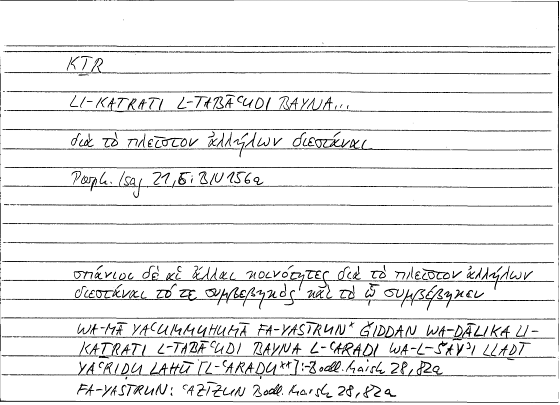 KṮR
LI-KAṮRATI L-TABĀʿUDI BAYNA...
διὰ τὸ πλεῖστον ἀλλήλων διεστάναι
Porph. Isag 21,
σπάνιοι δὲ αἱ ἄλλαι κοινότητες διὰ τὸ πλεῖστον ἀλλήλων
διεστάναι τό τε συμβεβηκὸς καὶ τὸ ᾧ συμβέβηκεν
WA-MĀ YAʿUMMUHUMĀ FA-YASĪRUN* ǦIDDAN WA-ḎĀLIKA LI-
KAṮRATI L-TABĀʿUDI BAYNA L-ʿARAḌI WA-L-ŠAYʾI LLAḎĪ
YAʿRIḌU LAHŪ [L-ʿARAḌU**]:-Bodl. Marsh 28,82a
FA-YASĪRUN: ʿAZĪZUN Bodl. Marsh 28,82a